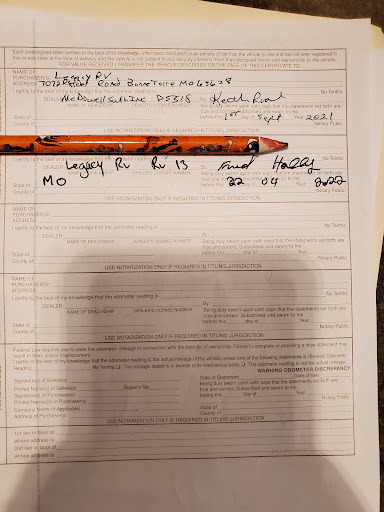 Each undersigned seller certifies to the best of his knowledge, information and belief under penalty of law that the vehicle is new and has not been registered in
this or any state at the time of delivery and the vehicle is not subject to any security interests other than those disclosed herein and warrant title to the vehicle.
FOR VALUE RECEIVED I TRANSFER THE VEHICLE DESCRIBED ON THE FACE OF THIS CERTIFICATE TO:
NAME OF PURCHASER(S) Legacy RV
ADDRESS 7072 Road Bonne Terre MO 63628
I certify to the best of my knowledge that the odometer reading is No Tenths
DEALER By:
NAME OF DEALERSHIP DEALER'S LICENSE NUMBER Being duly sworn upon oath says that the statements set forth are
true and correct. Subscribed and sworn to me
State of before this 1st day of Sept Year 2021
County of Notary Public
USE NOTARIZATION ONLY IF REQUIRED IN TITLING JURISDICTION
Legacy RV RV 13
MO 22 04 2022
State of
County of Notary Public
USE NOTARIZATION ONLY IF REQUIRED IN TITLING JURISDICTION
NAME OF
PURCHASER(S)
ADDRESS
I certify to the best of my knowledge that the odometer reading is No Tenths
DEALER By:
NAME OF DEALERSHIP DEALER'S LICENSE NUMBER Being duly sworn upon oath says that the statements set forth are
true and correct. Subscribed and sworn to me
State of before this day of Year
County of Notary Public
USE NOTARIZATION ONLY IF REQUIRED IN TITLING JURISDICTION
NAME OF
PURCHASER(S)
ADDRESS
I certify to the best of my knowledge that the odometer reading is No Tenths
DEALER By:
NAME OF DEALERSHIP DEALER'S LICENSE NUMBER Being duly sworn upon oath says that the statements set forth are
true and correct. Subscribed and sworn to me
State of before this day of Year
County of Notary Public
USE NOTARIZATION ONLY IF REQUIRED IN TITLING JURISDICTION
Federal Law requires you to state the odometer mileage in connection with the transfer of ownership. Failure to complete or providing a false statement may
result in fines and/or imprisonment.
I certify to the best of my knowledge that the odometer reading is the actual mileage of the vehicle unless one of the following statements is checked. Odometer
Reading: No Tenths The mileage stated is in excess of its mechanical limits The odometer reading is not the actual mileage.
WARNING ODOMETER DISCREPANCY
Signature(s) of Seller(s) Date of Statement Date of sale
Printed Name(s) of Seller(s) Dealer's No. Being duly sworn upon oath says that the statements set forth are
Signature(s) of Purchaser(s) true and correct. Subscribed and sworn to me
Printed Name(s) of Purchaser(s) before this day of Year
Company Name (if Applicable) State of Notary Public
Address of Purchaser(s) County of
USE NOTARIZATION ONLY IF REQUIRED IN TITLING JURISDICTION
1st lien in favor of
whose address is
2nd lien in favor of
whose address is